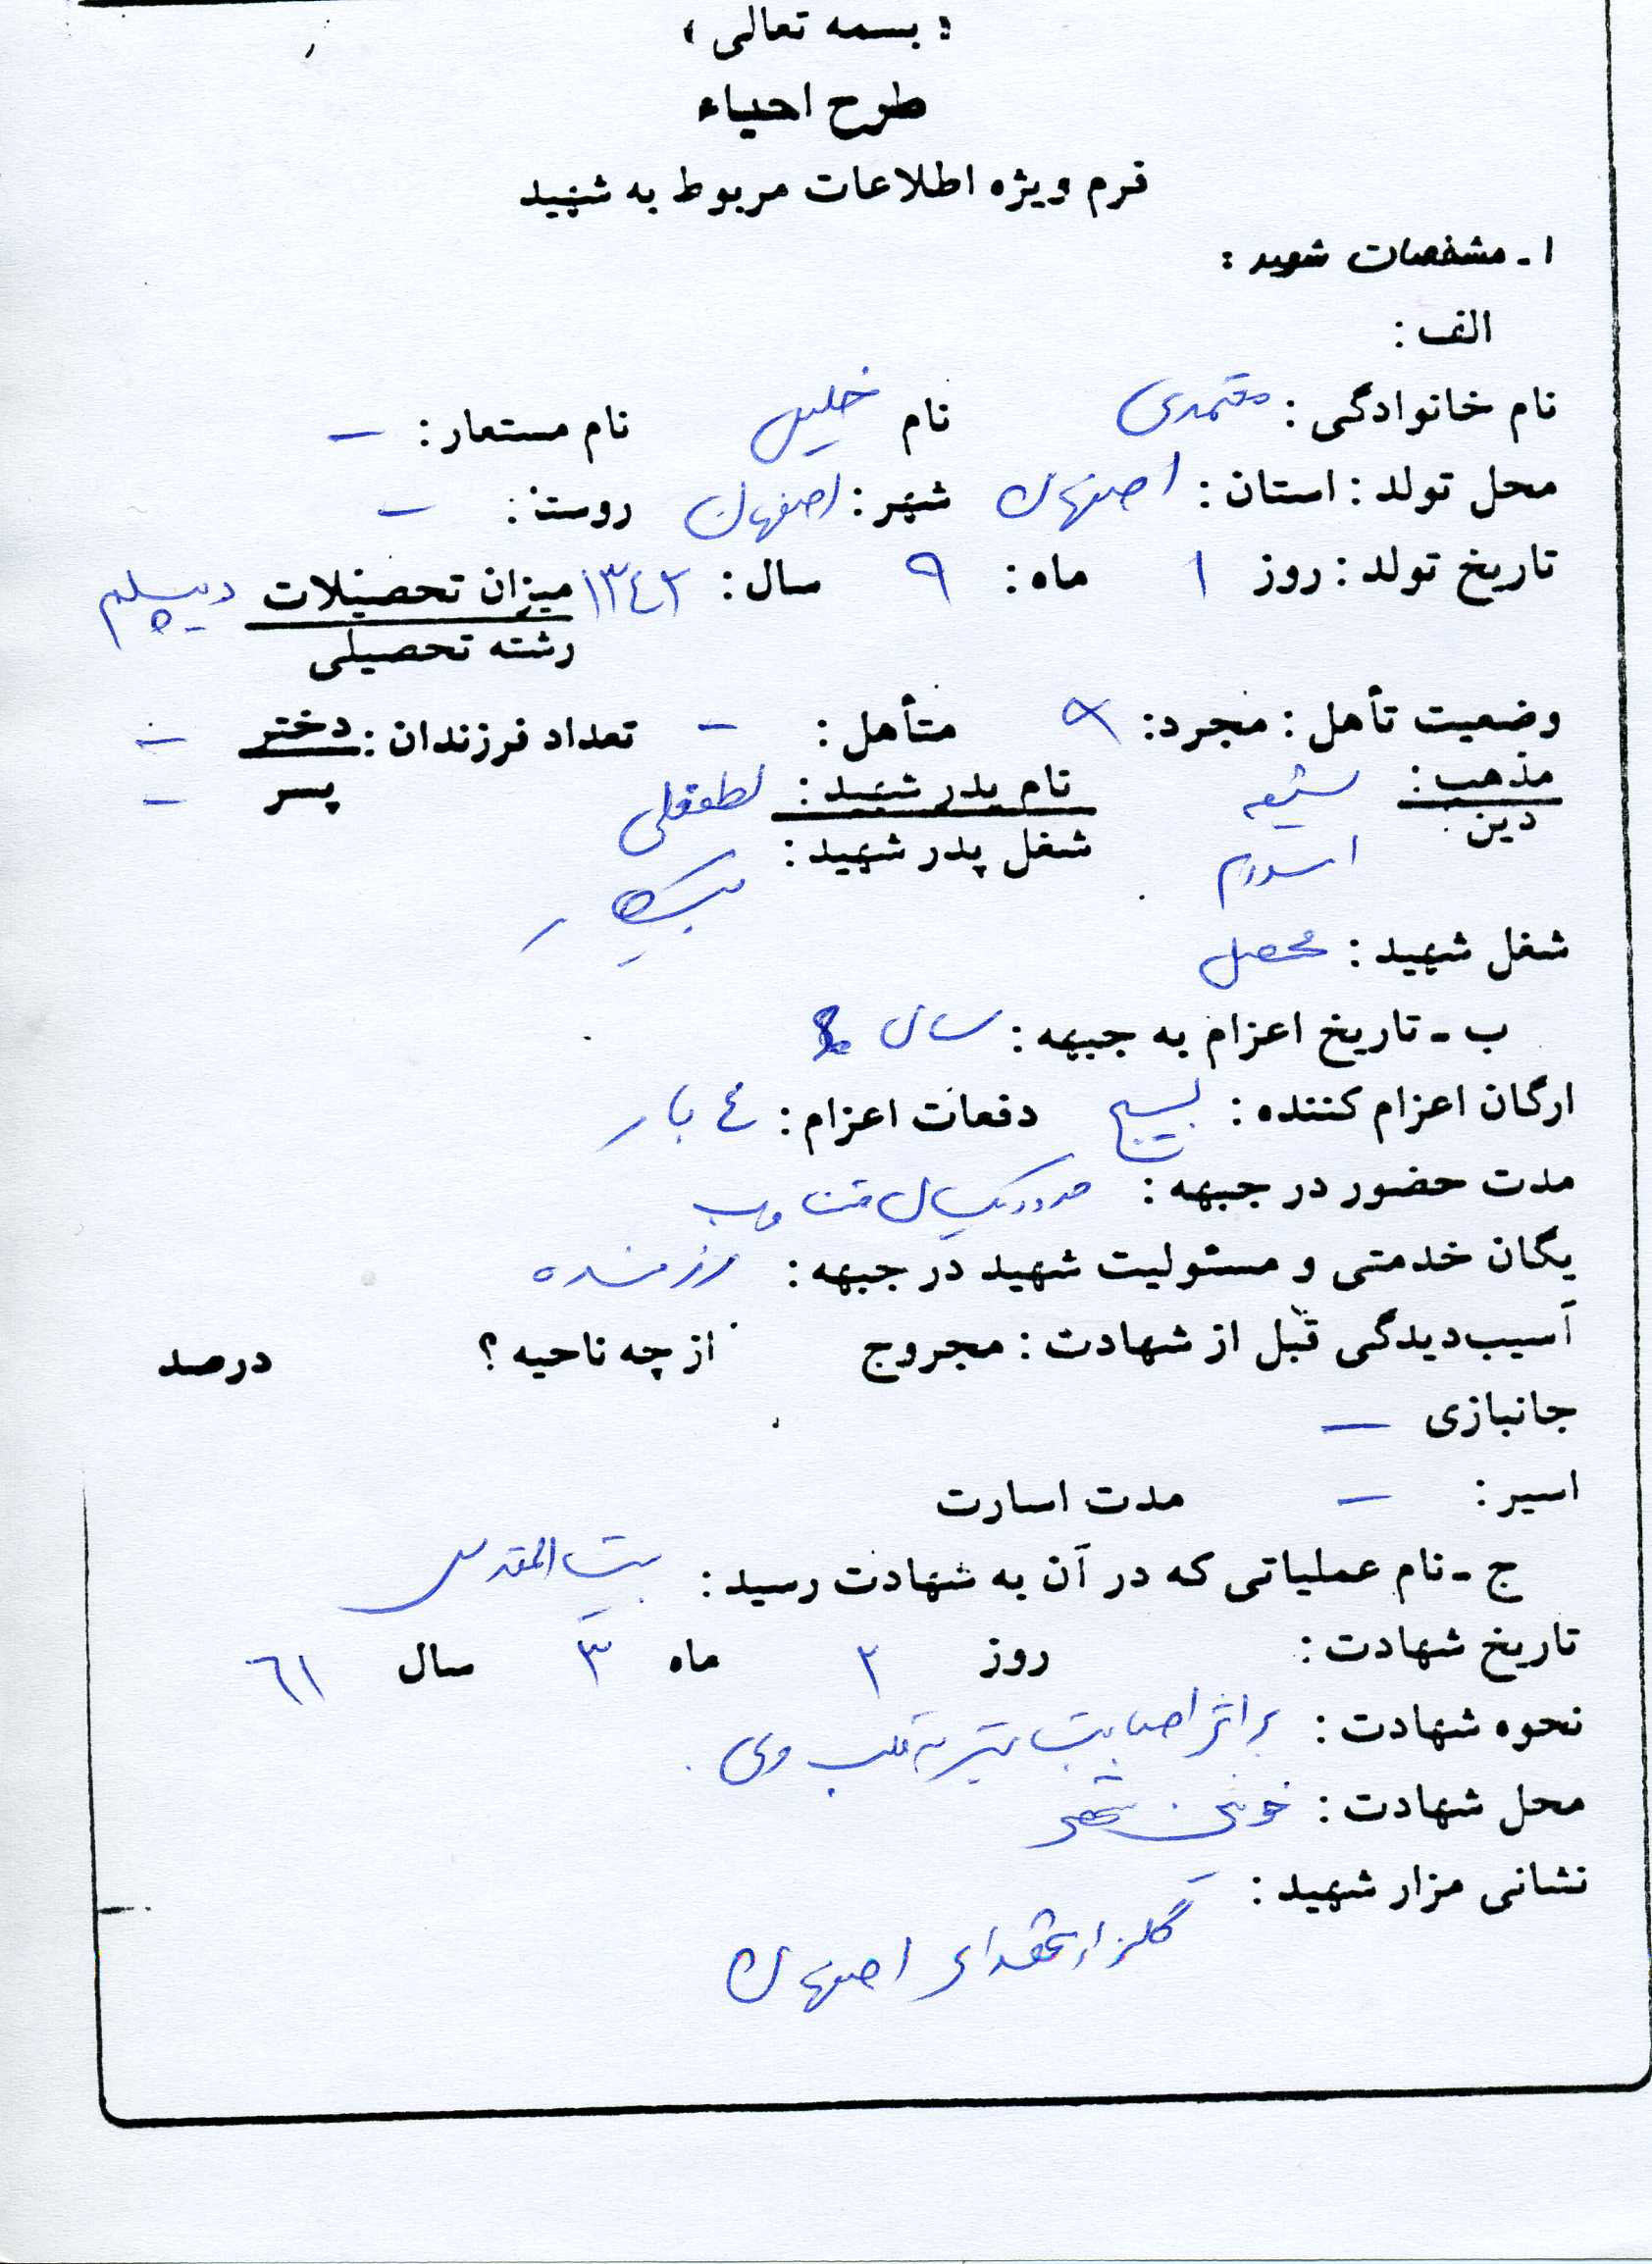 « بسمه تعالی »
طرح احیاء
فرم ویژه اطلاعات مربوط به شهید
۱ - مشخصات شهید :
الف :
نام خانوادگی : معتمدی نام خلیل نام مستعار : –
محل تولد : استان : اصفهان شهر : اصفهان روستا : –
تاریخ تولد : روز ۱ ماه : ۹ سال : ۱۳٤۲ میزان تحصیلات دیپلم
رشته تحصیلی
وضعیت تأهل : مجرد : متأهل : – تعداد فرزندان : دختر –
مذهب : شیعه نام پدر شهید : لطفعلی پسر –
دین اسلام شغل پدر شهید : بیکار
شغل شهید : محصل
ب - تاریخ اعزام به جبهه : سال
ارگان اعزام کننده : بسیج دفعات اعزام : ٤ بار
مدت حضور در جبهه : حدود یکسال متناوب
یگان خدمتی و مسئولیت شهید در جبهه : رزمنده
آسیب‌دیدگی قبل از شهادت : مجروح از چه ناحیه ؟ درصد
جانبازی –
اسیر : – مدت اسارت
ج - نام عملیاتی که در آن به شهادت رسید : بیت المقدس
تاریخ شهادت : روز ۲ ماه ۳ سال ٦۱
نحوه شهادت : بر اثر اصابت تیر به قلب وی .
محل شهادت : خونین شهر
نشانی مزار شهید :
گلزار شهدای اصفهان